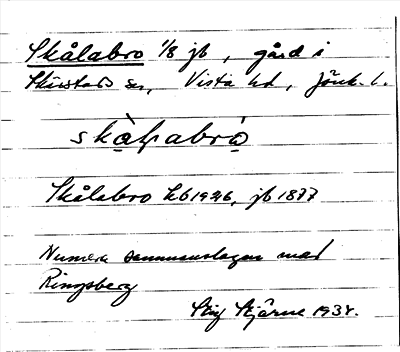 Skålabro 1/8 jb, gård i
Skärstads sn, Vista hd, Jönk. l.
Skålabro kb 1926, jb 1877
Numera sammanslagen med
Ringsberg
Stig Stjärne 1938.